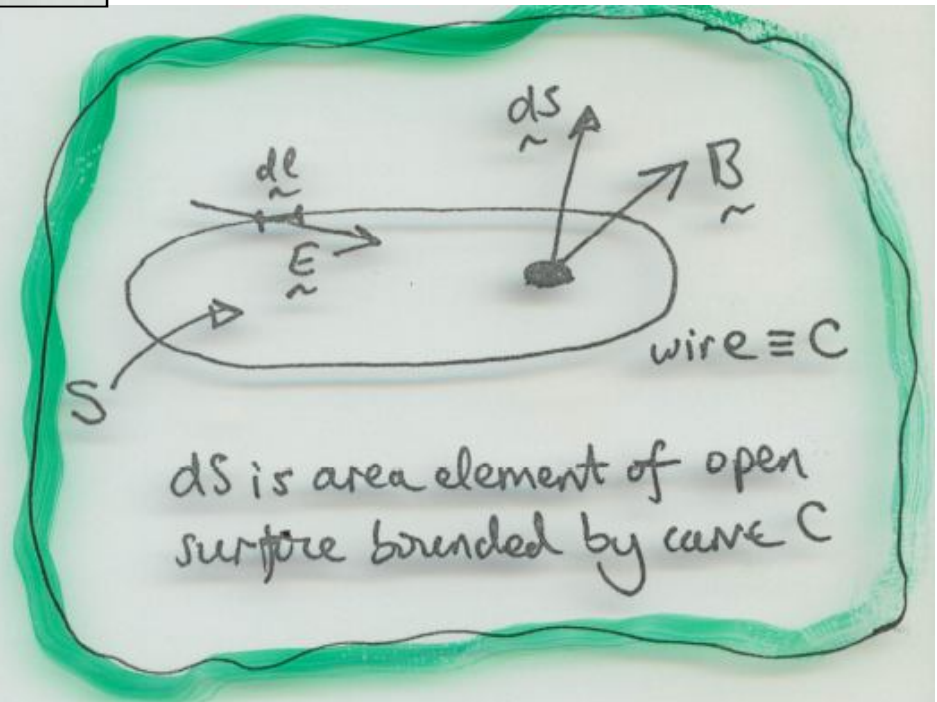 dS
B
dl
E
wire ≡ C
S
dS is area element of open
surface bounded by curve C